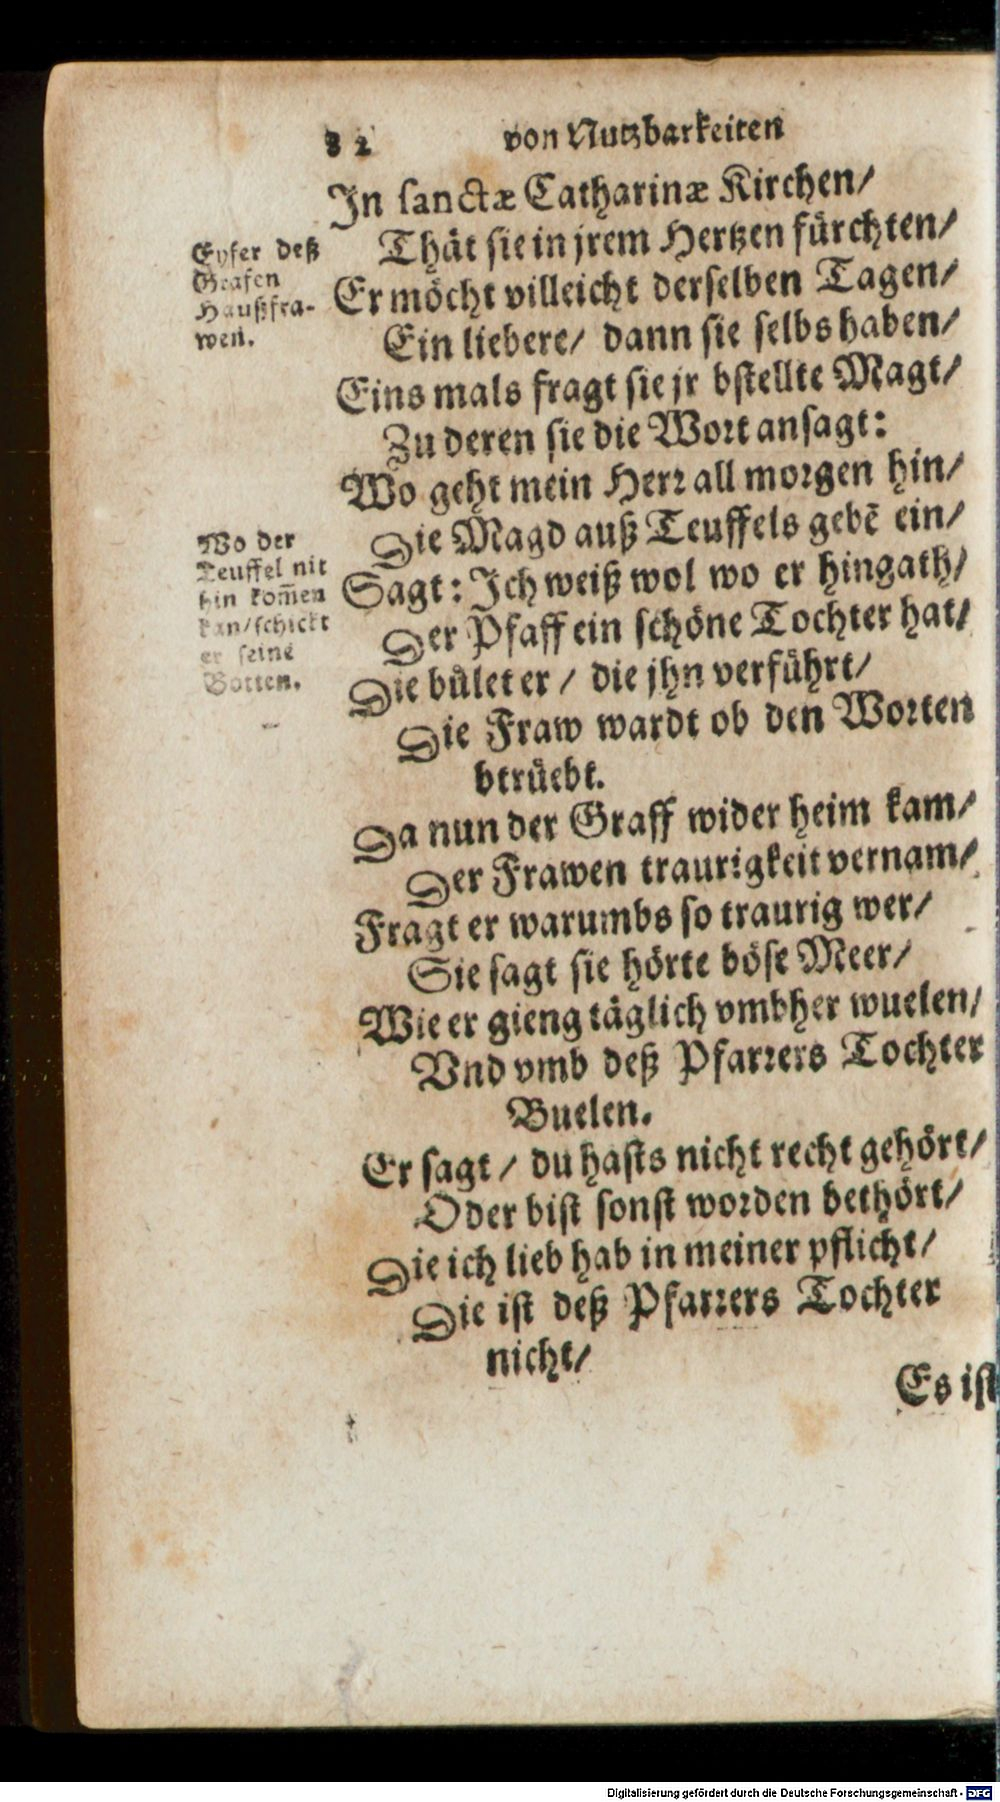 82 von Nutzbarkeiten
In sanctæ Catharinæ Kirchen/
Thät sie in jrem Hertzen fürchten/
Er möcht villeicht derselben Tagen/
Ein liebere/ dann sie selbs haben/
Eins mals fragt sie jr bstellte Magt/
Zu deren sie die Wort ansagt:
Wo geht mein Herr all morgen hin/
Die Magd auß Teuffels gebẽ ein/
Sagt: Ich weiß wol wo er hingath/
Der Pfaff ein schöne Tochter hat/
Die bůlet er / die jhn verführt/
Die Fraw wardt ob den Worten
btrůebt.
Da nun der Graff wider heim kam/
Der Frawen traurigkeit vernam/
Fragt er warumbs so traurig wer/
Sie sagt sie hörte böse Meer/
Wie er gieng täglich vmbher wuelen/
Vnd vmb deß Pfarrers Tochter
Buelen.
Er sagt / du hasts nicht recht gehört/
Oder bist sonst worden bethört/
Die ich lieb hab in meiner pflicht/
Die ist deß Pfarrers Tochter
nicht/
Es ist
Eyfer deß
Grafen
Haußfra-
wen.
Wo der
Teuffel nit
hin kom̃en
kan/schickt
er seine
Botten.
Digitalisierung gefördert durch die Deutsche Forschungsgemeinschaft - DFG